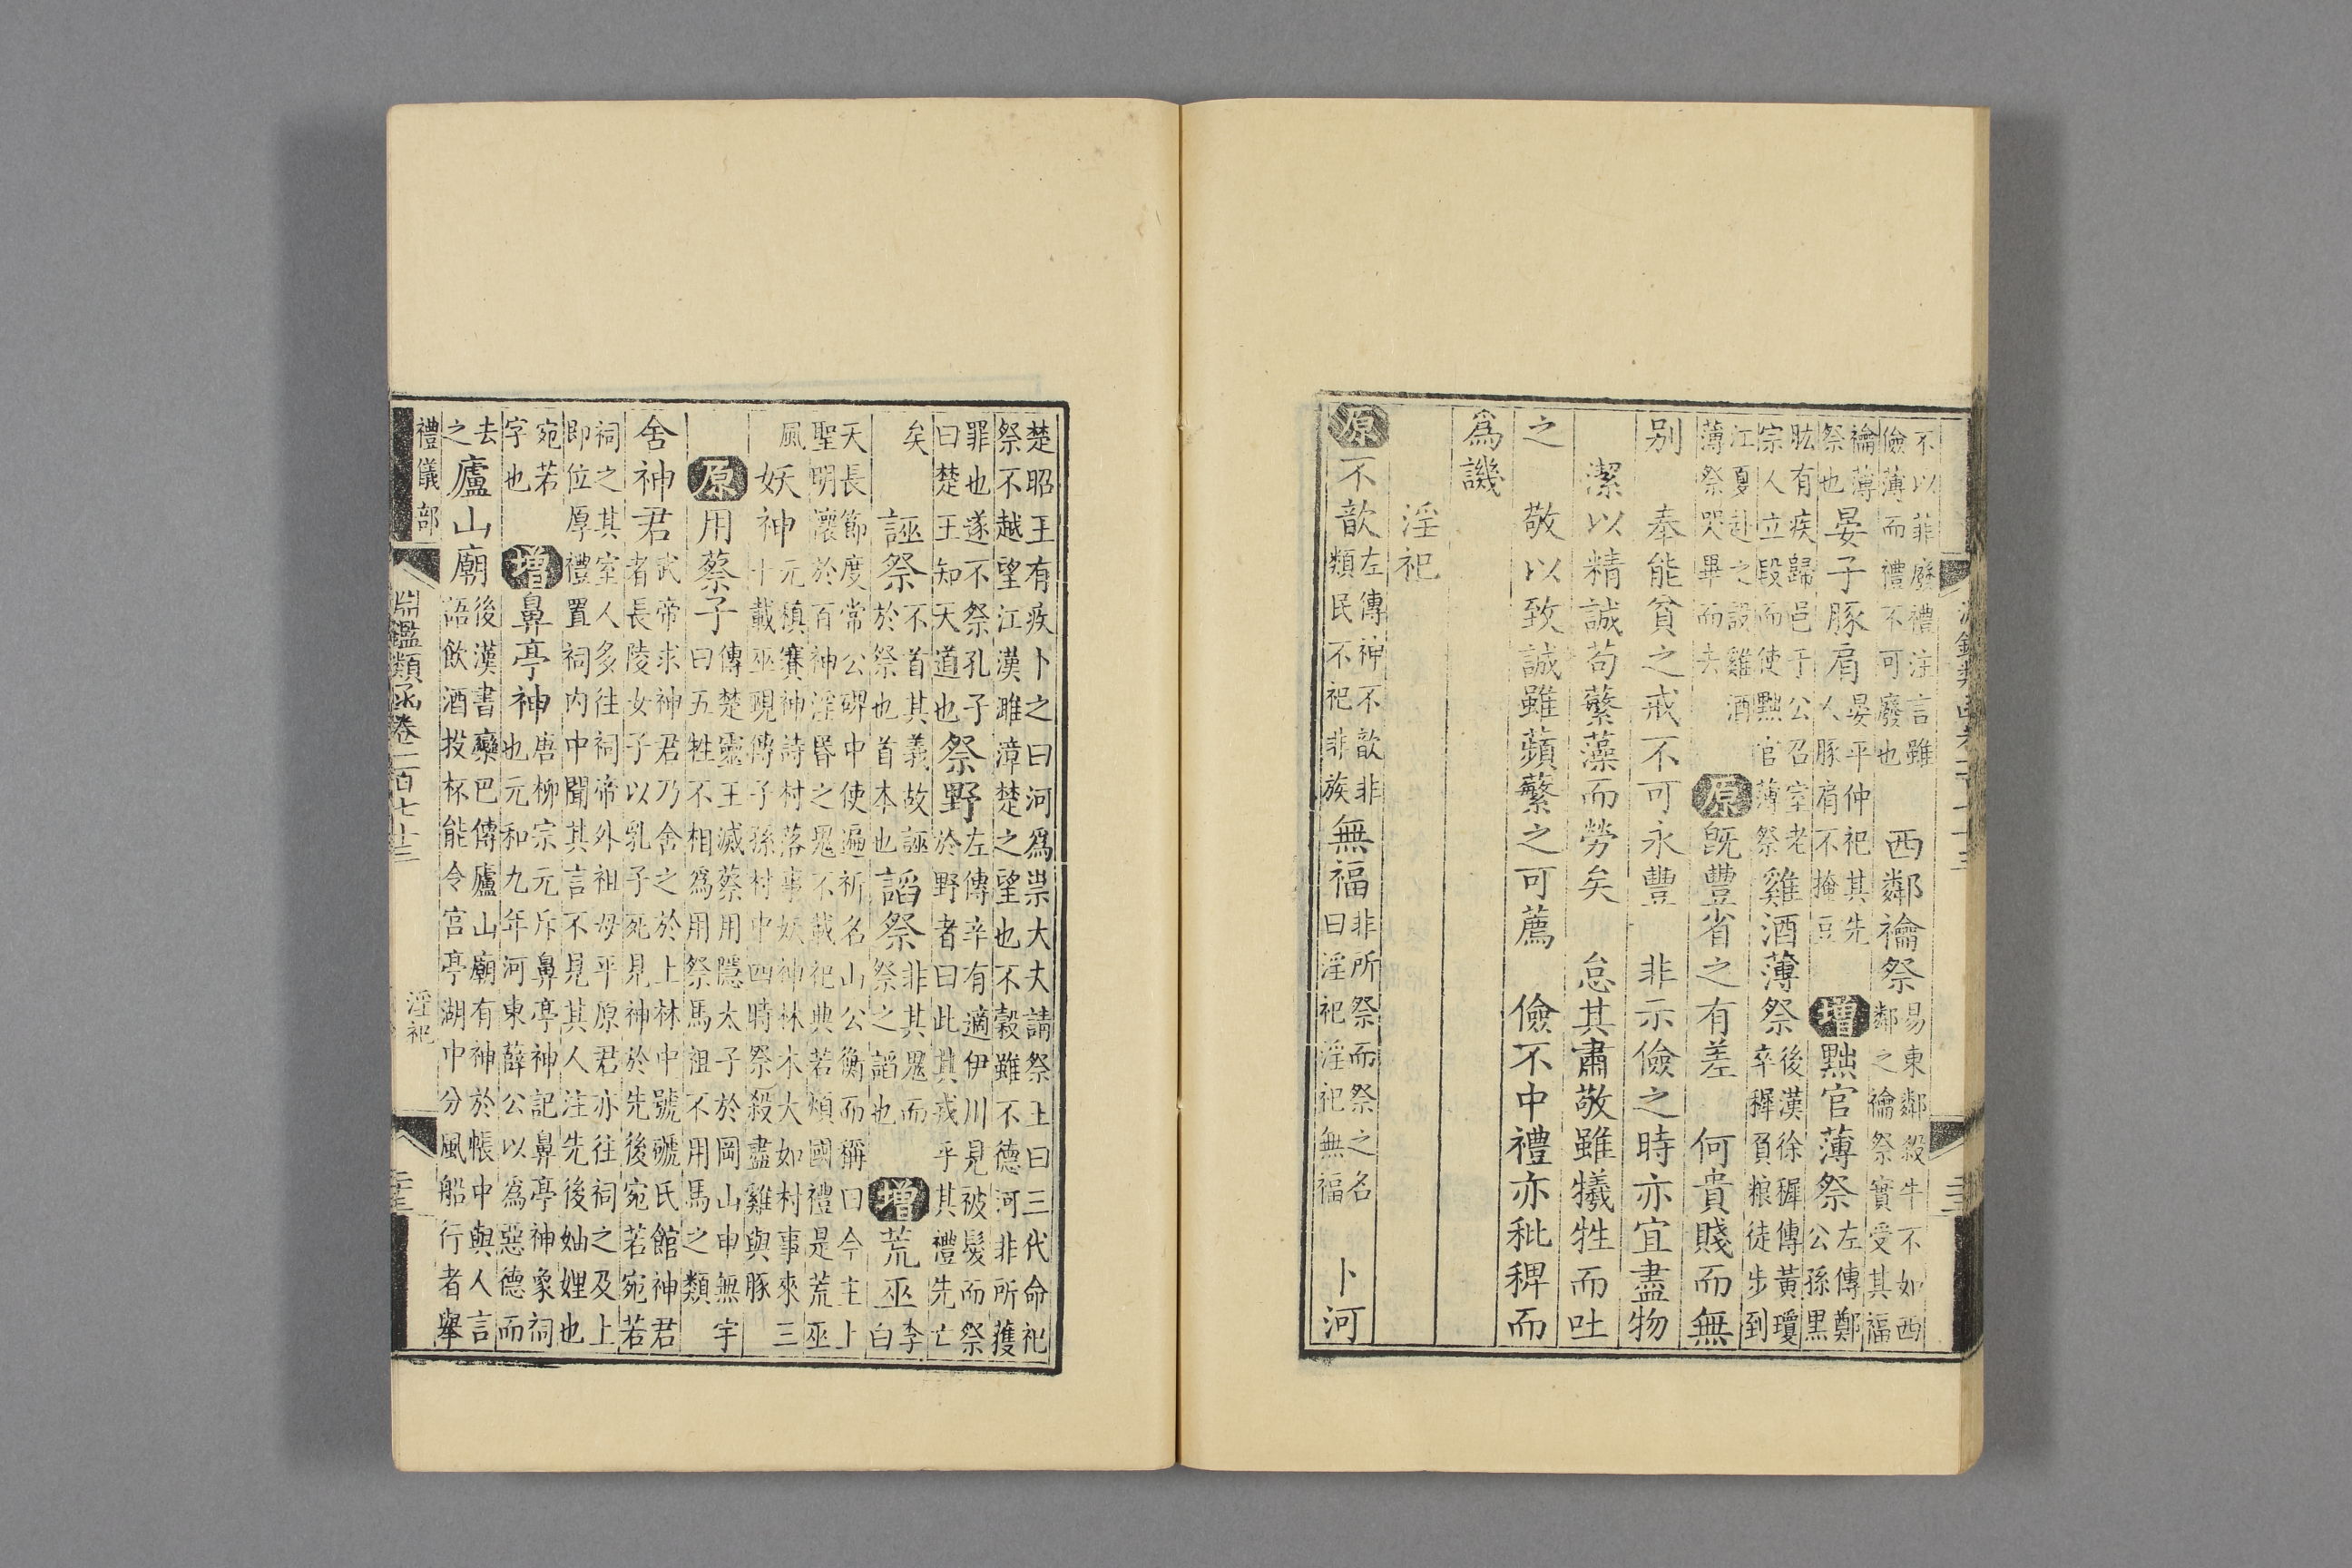 不以菲廢禮注言雖儉薄而禮不可廢也西鄰禴祭易東鄰殺牛不如西鄰之禴祭實受其福
禴薄祭也晏子豚肩晏平仲祀其先人豚肩不掩豆增黜官薄祭左傳鄭公孫黑
肱有疾歸邑于公召室老宗人立段而使黜官薄祭雞酒薄祭後漢徐穉傳黃瓊卒穉負粮徒步到
江夏赴之設雞酒薄祭哭畢而去原旣豐省之有差 何貴賤而無
别 奉能貧之戒不可永豐 非示儉之時亦宜盡物
潔以精誠苟蘩藻而勞矣 怠其肅敬雖犧牲而吐
之 敬以致誠雖蘋蘩之可薦 儉不中禮亦秕稗而
爲譏
淫祀
原不歆左傳神不歆非類民不祀非族無福非所祭而祭之名曰淫祀淫祀無福 卜河
楚昭王有疾卜之曰河爲祟大夫請祭王曰三代命祀祭不越望江漢雎漳楚之望也不穀雖不德河非所獲
罪也遂不祭孔子曰楚王知天道也祭野左傳辛有適伊川見被髮而祭於野者曰此其戎乎其禮先亡
矣 誣祭不首其義故誣於祭也首本也謟祭非其鬼而祭之謟也 增荒巫李白
天長節度常公碑中使遍祈名山公衡而稱曰今主上聖明瀤於百神淫昏之鬼不載祀典若煩國禮是荒巫
風 妖神元稹賽神詩村落事妖神林木大如村事來三十載巫覡傳子孫村中四時祭殺盡雞與豚
原用蔡子傳楚靈王滅蔡用隱太子於岡山申無宇曰五牲不相爲用祭馬祖不用馬之類
舍神君武帝求神君乃舍之於上林中號蹏氏館神君者長陵女子以乳子死見神於先後宛若宛若
祠之其室人多往祠帝外祖母平原君亦往祠之及上即位厚禮置祠內中聞其言不見其人注先後妯娌也
宛若字也 增鼻亭神唐柳宗元斥鼻亭神記鼻亭神象祠也元和九年河東薛公以爲惡德而
去之廬山廟後漢書欒巴傳廬山廟有神於帳中與人言語飲酒投杯能令宮亭湖中分風船行者舉
禮儀部
淵鑑類函卷二百七十三
淫祀